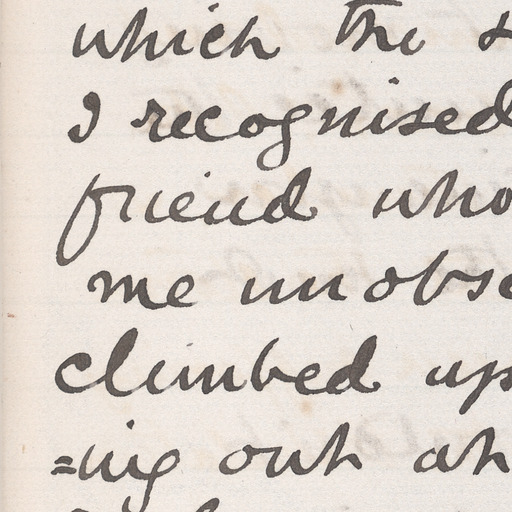 which the s
I recognised
friend who
me unobse
climbed up
=ing out at